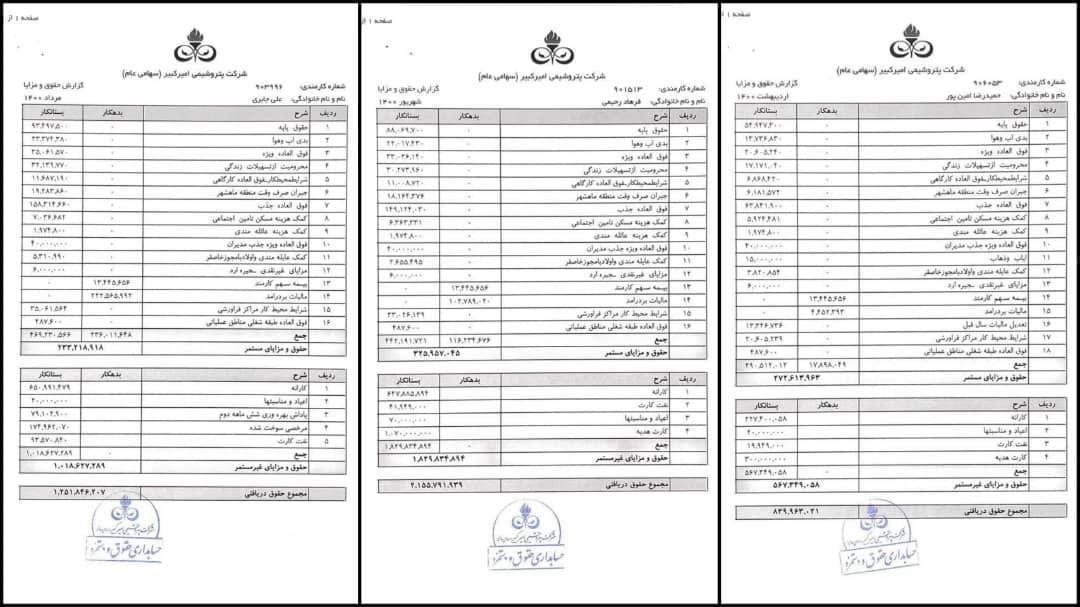 صفحه ۱ از
شرکت پتروشیمی امیرکبیر (سهامی عام)
شماره کارمندی: ۹۰۶۰۵۳ گزارش حقوق و مزایا
نام و نام خانوادگی: حمیدرضا امین پور اردیبهشت ۱۴۰۰
ردیف شرح بدهکار بستانکار
۱ حقوق پایه ۰ ۵۴,۹۴۷,۳۰۰
۲ بدی آب وهوا ۰ ۱۳,۷۳۶,۸۳۰
۳ فوق العاده ویژه ۰ ۲۰,۶۰۵,۲۴۰
۴ محرومیت ازتسهیلات زندگی ۰ ۱۷,۱۷۱,۰۴۰
۵ شرایطمحیطکار_فوق العاده کارگاهی ۰ ۶,۸۶۸,۴۲۰
۶ جبران صرف وقت منطقه ماهشهر ۰ ۶,۱۸۱,۵۷۲
۷ فوق العاده جذب ۰ ۶۳,۸۴۱,۹۰۰
۸ کمک هزینه مسکن تامین اجتماعی ۰ ۵,۹۲۴,۴۸۱
۹ کمک هزینه عائله مندی ۰ ۱,۹۷۴,۸۰۰
۱۰ فوق العاده ویژه جذب مدیران ۰ ۴۰,۰۰۰,۰۰۰
۱۱ ایاب وذهاب ۰ ۱۵,۰۰۰,۰۰۰
۱۲ کمک عایله مندی واولادبامجوزخاصفر ۰ ۳,۸۲۰,۸۵۴
۱۳ مزایای غیرنقدی _جیره ارد ۰ ۶,۰۰۰,۰۰۰
۱۴ بیمه سهم کارمند ۱۳,۴۴۵,۶۵۶ ۰
۱۵ مالیات بردرامد ۴,۴۵۲,۳۹۳ ۰
۱۶ تعدیل مالیات سال قبل ۰ ۱۳,۳۴۶,۷۳۶
۱۷ شرایط محیط کار مراکز فراورشی ۰ ۲۰,۶۰۵,۲۳۹
۱۸ فوق العاده طبقه شغلی مناطق عملیاتی ۰ ۴۸۷,۶۰۰
جمع ۱۷,۸۹۸,۰۴۹ ۲۹۰,۵۱۲,۰۱۲
حقوق و مزایای مستمر ۲۷۲,۶۱۳,۹۶۳
ردیف شرح بدهکار بستانکار
۱ کارانه ۲۲۷,۴۰۰,۰۵۸
۲ اعیاد و مناسبتها ۲۰,۰۰۰,۰۰۰
۳ نفت کارت ۱۹,۹۴۹,۰۰۰
۴ کارت هدیه ۳۰۰,۰۰۰,۰۰۰
جمع ۰ ۵۶۷,۳۴۹,۰۵۸
حقوق و مزایای غیرمستمر ۵۶۷,۳۴۹,۰۵۸
مجموع حقوق دریافتی ۸۳۹,۹۶۳,۰۲۱
حسابداری حقوق و دستمزد
صفحه ۱ از
شرکت پتروشیمی امیرکبیر (سهامی عام)
شماره کارمندی: ۹۰۱۵۱۳ گزارش حقوق و مزایا
نام و نام خانوادگی: فرهاد رحیمی شهریور ۱۴۰۰
ردیف شرح بدهکار بستانکار
۱ حقوق پایه ۰ ۸۸,۰۶۹,۷۰۰
۲ بدی آب وهوا ۰ ۲۲,۰۱۷,۴۳۰
۳ فوق العاده ویژه ۰ ۳۳,۰۲۶,۱۴۰
۴ محرومیت ازتسهیلات زندگی ۰ ۳۰,۲۷۳,۹۶۰
۵ شرایطمحیطکار_فوق العاده کارگاهی ۰ ۱۱,۰۰۸,۷۲۰
۶ جبران صرف وقت منطقه ماهشهر ۰ ۱۸,۱۶۴,۳۷۶
۷ فوق العاده جذب ۰ ۱۴۹,۱۲۴,۰۳۰
۸ کمک هزینه مسکن تامین اجتماعی ۰ ۶,۳۶۳,۲۳۱
۹ کمک هزینه عائله مندی ۰ ۱,۹۷۴,۸۰۰
۱۰ فوق العاده ویژه جذب مدیران ۰ ۴۰,۰۰۰,۰۰۰
۱۱ کمک عایله مندی واولادبامجوزخاصفر ۰ ۲,۶۵۵,۴۹۵
۱۲ مزایای غیرنقدی _جیره ارد ۰ ۶,۰۰۰,۰۰۰
۱۳ بیمه سهم کارمند ۱۳,۴۴۵,۶۵۶ ۰
۱۴ مالیات بردرامد ۱۰۲,۷۸۹,۰۲۰ ۰
۱۵ شرایط محیط کار مراکز فراورشی ۰ ۳۳,۰۲۶,۱۳۹
۱۶ فوق العاده طبقه شغلی مناطق عملیاتی ۰ ۴۸۷,۶۰۰
جمع ۱۱۶,۲۳۴,۶۷۶ ۴۴۲,۱۹۱,۷۲۱
حقوق و مزایای مستمر ۳۲۵,۹۵۷,۰۴۵
ردیف شرح بدهکار بستانکار
۱ کارانه ۶۴۷,۸۸۵,۸۹۴
۲ نفت کارت ۴۱,۹۴۹,۰۰۰
۳ اعیاد و مناسبتها ۷۰,۰۰۰,۰۰۰
۴ کارت هدیه ۱,۰۷۰,۰۰۰,۰۰۰
جمع ۰ ۱,۸۲۹,۸۳۴,۸۹۴
حقوق و مزایای غیرمستمر ۱,۸۲۹,۸۳۴,۸۹۴
مجموع حقوق دریافتی ۲,۱۵۵,۷۹۱,۹۳۹
حسابداری حقوق و دستمزد
صفحه ۱ از
شرکت پتروشیمی امیرکبیر (سهامی عام)
شماره کارمندی: ۹۰۳۹۹۶ گزارش حقوق و مزایا
نام و نام خانوادگی: علی جابری مرداد ۱۴۰۰
ردیف شرح بدهکار بستانکار
۱ حقوق پایه ۰ ۹۳,۴۹۷,۵۰۰
۲ بدی آب وهوا ۰ ۲۳,۳۷۴,۳۸۰
۳ فوق العاده ویژه ۰ ۳۵,۰۶۱,۵۷۰
۴ محرومیت ازتسهیلات زندگی ۰ ۳۲,۱۳۹,۷۷۰
۵ شرایطمحیطکار_فوق العاده کارگاهی ۰ ۱۱,۶۸۷,۱۹۰
۶ جبران صرف وقت منطقه ماهشهر ۰ ۱۹,۲۸۳,۸۶۰
۷ فوق العاده جذب ۰ ۱۵۸,۳۱۴,۶۶۰
۸ کمک هزینه مسکن تامین اجتماعی ۰ ۷,۰۳۶,۶۸۲
۹ کمک هزینه عائله مندی ۰ ۱,۹۷۴,۸۰۰
۱۰ فوق العاده ویژه جذب مدیران ۰ ۴۰,۰۰۰,۰۰۰
۱۱ کمک عایله مندی واولادبامجوزخاصفر ۰ ۵,۳۱۰,۹۹۰
۱۲ مزایای غیرنقدی _جیره ارد ۰ ۶,۰۰۰,۰۰۰
۱۳ بیمه سهم کارمند ۱۳,۴۴۵,۶۵۶ ۰
۱۴ مالیات بردرامد ۲۲۲,۵۶۵,۹۹۲ ۰
۱۵ شرایط محیط کار مراکز فراورشی ۰ ۳۵,۰۶۱,۵۶۴
۱۶ فوق العاده طبقه شغلی مناطق عملیاتی ۰ ۴۸۷,۶۰۰
جمع ۲۳۶,۰۱۱,۶۴۸ ۴۶۹,۲۳۰,۵۶۶
حقوق و مزایای مستمر ۲۳۳,۲۱۸,۹۱۸
ردیف شرح بدهکار بستانکار
۱ کارانه ۶۵۰,۹۹۱,۴۷۹
۲ اعیاد و مناسبتها ۲۰,۰۰۰,۰۰۰
۳ پاداش بهره وری شش ماهه دوم ۷۹,۱۰۲,۹۰۰
۴ مرخصی سوخت شده ۱۷۴,۹۶۲,۰۷۰
۵ نفت کارت ۹۳,۵۷۰,۸۴۰
جمع ۰ ۱,۰۱۸,۶۲۷,۲۸۹
حقوق و مزایای غیرمستمر ۱,۰۱۸,۶۲۷,۲۸۹
مجموع حقوق دریافتی ۱,۲۵۱,۸۴۶,۲۰۷
حسابداری حقوق و دستمزد